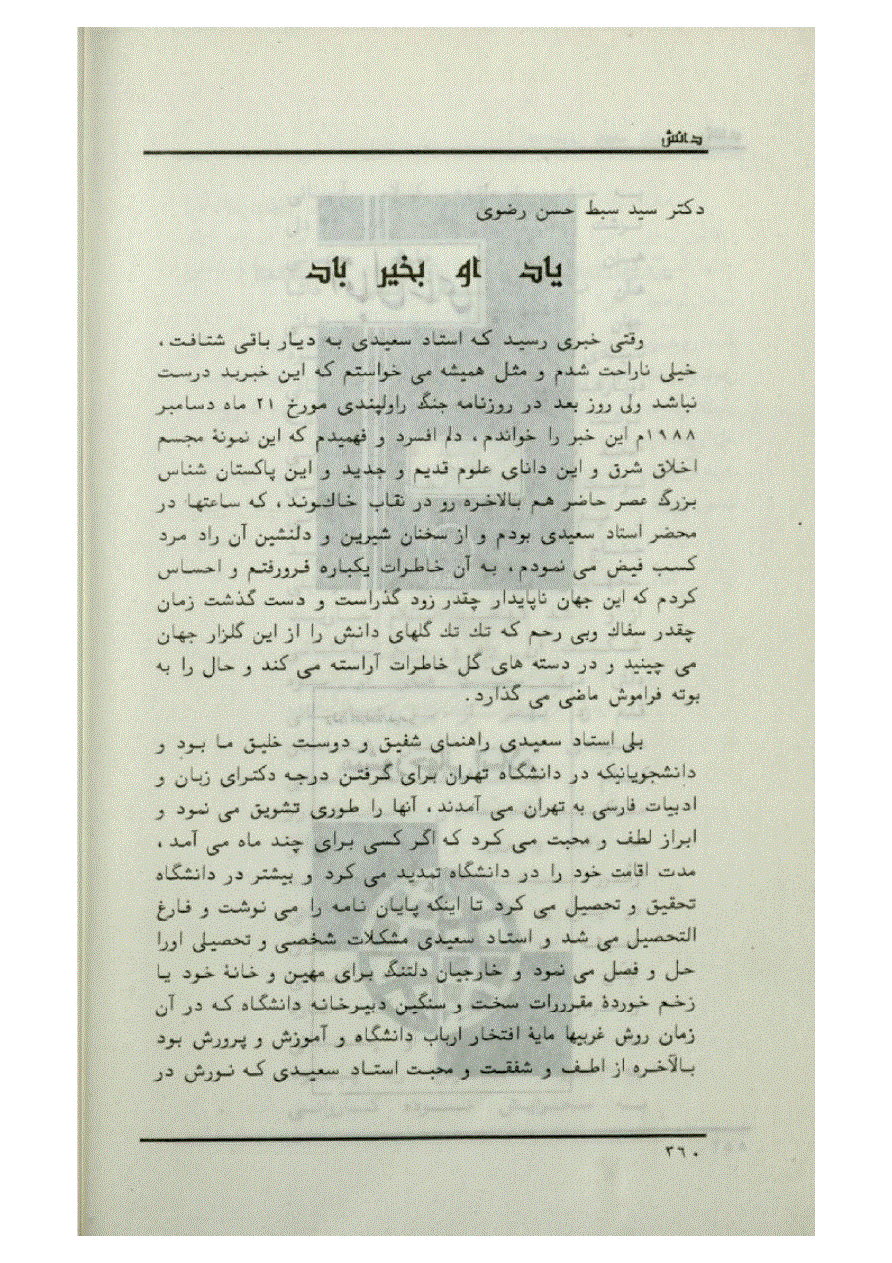 دانش
دکتر سید سبط حسن رضوی
یاد او بخیر باد
وقتی خبری رسید که استاد سعیدی به دیار باقی شتافت ،
خیلی ناراحت شدم و مثل همیشه می خواستم که این خبربد درست
نباشد ولی روز بعد در روزنامه جنگ راولپندی مورخ ۲۱ ماه دسامبر
۱۹۸۸م این خبر را خواندم ، دلم افسرد و فهمیدم که این نمونهٔ مجسم
اخلاق شرق و این دانای علوم قدیم و جدید و این پاکستان شناس
بزرگ عصر حاضر هم بالاخره رو در نقاب خاك‌وند ، که ساعتها در
محضر استاد سعیدی بودم و از سخنان شیرین و دلنشین آن راد مرد
کسب فیض می نمودم ، به آن خاطرات یکباره فرورفتم و احساس
کردم که این جهان ناپایدار چقدر زود گذراست و دست گذشت زمان
چقدر سفاك وبی رحم که تك تك گلهای دانش را از این گلزار جهان
می چینید و در دسته های گل خاطرات آراسته می کند و حال را به
بوته فراموش ماضی می گذارد .
بلی استاد سعیدی راهنمای شفیق و دوست خلیق ما بود و
دانشجویانیکه در دانشگاه تهران برای گرفتن درجه دکترای زبان و
ادبیات فارسی به تهران می آمدند ، آنها را طوری تشویق می نمود و
ابراز لطف و محبت می کرد که اگر کسی برای چند ماه می آمد ،
مدت اقامت خود را در دانشگاه تبدید می کرد و بیشتر در دانشگاه
تحقیق و تحصیل می کرد تا اینکه پایان نامه را می نوشت و فارغ
التحصیل می شد و استاد سعیدی مشکلات شخصی و تحصیلی اورا
حل و فصل می نمود و خارجیان دلتنگ برای مهین و خانهٔ خود یا
زخم خوردهٔ مقرررات سخت و سنگین دبیرخانه دانشگاه که در آن
زمان روش غربیها مایهٔ افتخار ارباب دانشگاه و آموزش و پرورش بود
بالآخره از اطف و شفقت و محبت استاد سعیدی که نورش در
۳۶۰